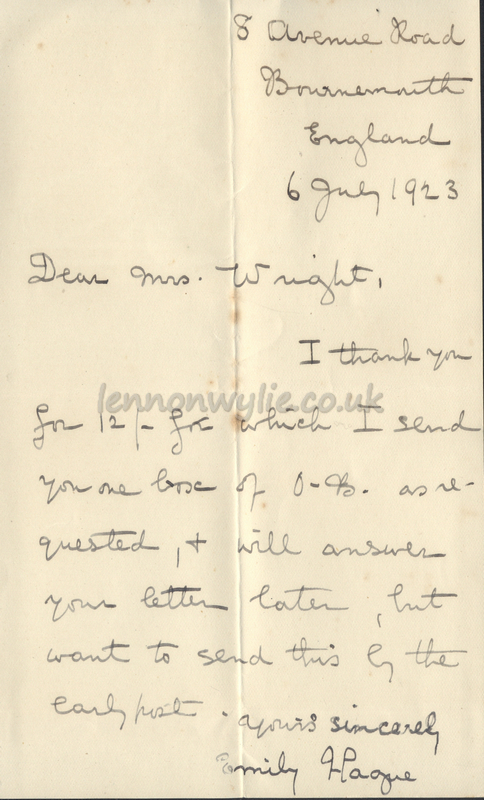 8 Avenue Road
Bournemouth
England
6 July 1923
Dear Mrs. Wright,
I thank you
lennonwylie.co.uk
for 12/- for which I send
you one box of O-B. as re-
quested, & will answer
your letter later, but
want to send this by the
early post. Yours sincerely
Emily Hague